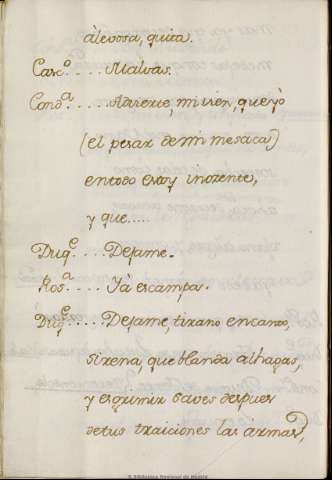 àlevosa, quita.
Casc.º .... Malvas.
Cond.ª .... Advierte, mi vien, que yò
(el pesar de mi me saca)
en todo estoy inozente,
y que.....
Duq.e .... Dejame.
Ros.a .... Yà escampa.
Duq.e .... Dejame, tirano encanto,
sirena, que blanda alhagas,
y esgrimir saves despues
de tus traiciones las armas,
© Biblioteca Nacional de España